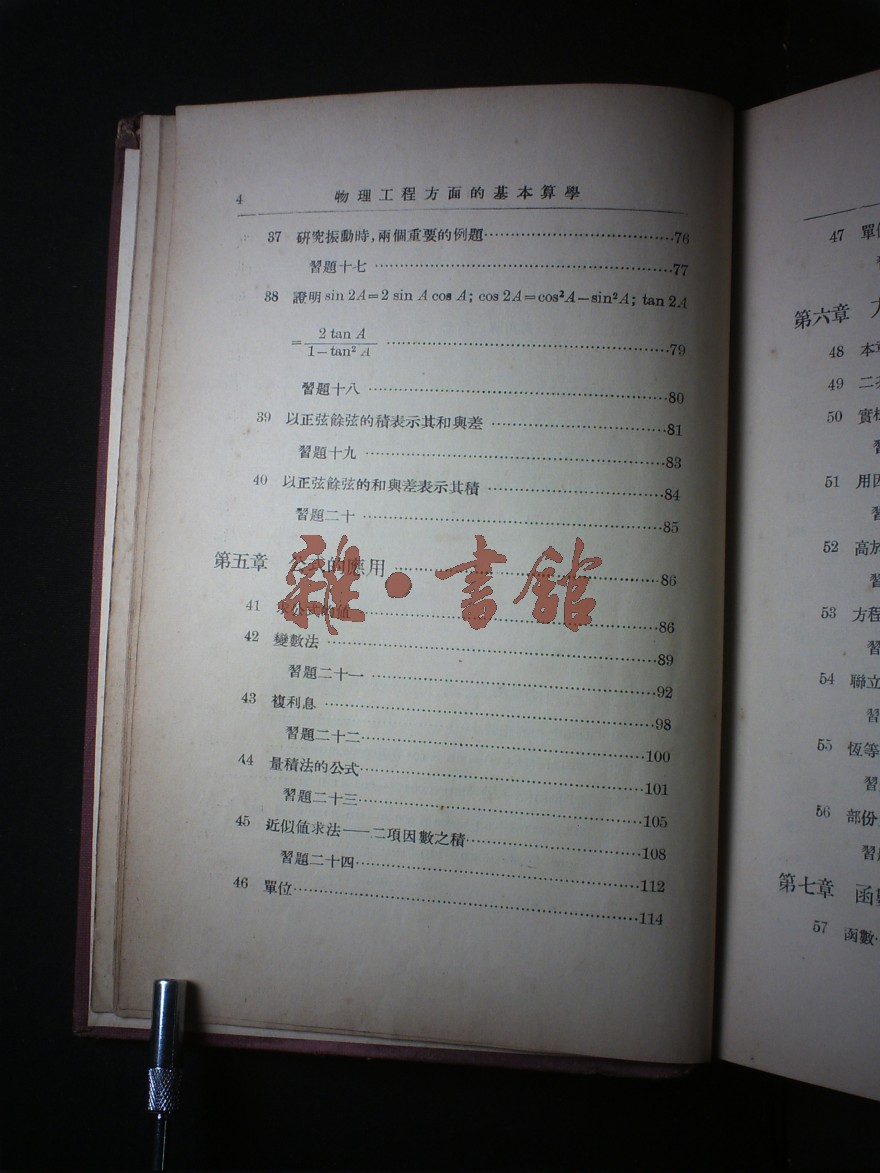 4 物理工程方面的基本算學
37 研究振動時,兩個重要的例題 76
習題十七 77
38 證明 sin 2A=2 sin A cos A; cos 2A=cos²A−sin²A; tan 2A
=2 tan A/1−tan² A 79
習題十八 80
39 以正弦餘弦的積表示其和與差 81
習題十九 83
40 以正弦餘弦的和與差表示其積 84
習題二十 85
第五章 公式的應用 86
雜·書館
41 求公式的値 86
42 變數法 89
習題二十一 92
43 複利息 98
習題二十二 100
44 量積法的公式 101
習題二十三 105
45 近似値求法——二項因數之積 108
習題二十四 112
46 單位 114
47 單
第六章
48 本
49 二
50 實
習
51 用
習
52 高於
習
53 方程
習
54 聯立
習
55 恆等
習
56 部份
習
第七章 函
57 函數